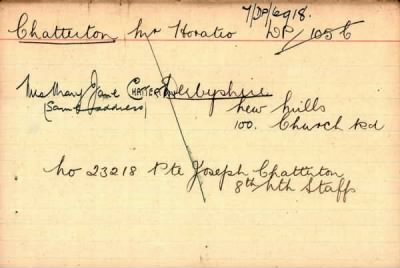 7/DP/6918.
Chatterton Mr Horatio DP/105 b
Mrs Mary Jane CHATTERTON Derbyshire
(Same address) New Mills
100. Church Rd
No 23218 Pte Joseph Chatterton
8th Nth Staffs